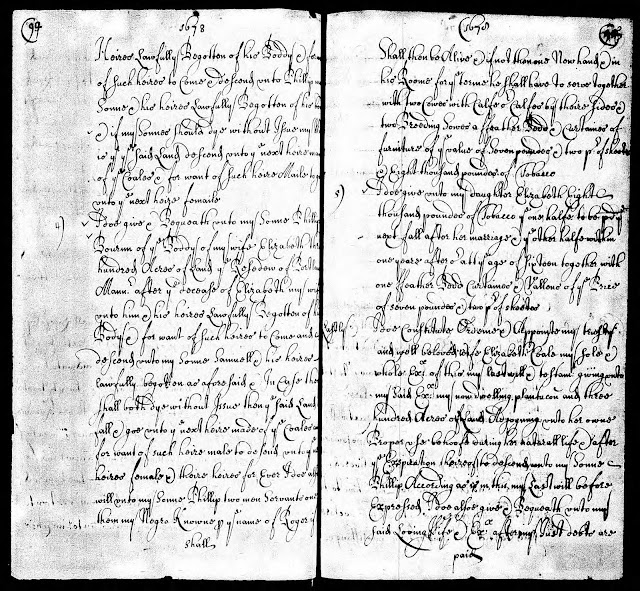 94
1678
Heires Lawfully Begotten of his Boddy & for
of such heires to Come & descend vnto Phillip
Sonne & his heires Lawfully Begotten of his
& if my Sonnes should dye without Issue my
is yt ye said Land descend vnto ye next heire
of ye Coales & for want of such heire Male to
vnto ye next heire female
4)
I doe give & Bequeath vnto my Sonne Phillip
Bourne of ye Boddy of my wife Elizabeth
hundred Acres of Land ye
Mannr after ye decease of Elizabeth my
vnto him & his heires Lawfully Begotten of
Body & for want of such heires to Come and
descend vnto my Sonne Samuell & his heires
lawfully begotten as aforesaid & In Case the
shall both dye without Issue then ye said Land
fall & goe vnto ye next heire made of ye Coales
for want of such heire male to descend vnto ye
heires female & theire heires for Ever I doe
will vnto my Sonne Phillip two men Servants one
them my Negro Knowne p ye name of Roger
shall
1678
Shall then be Alive & if not then one New hand & in
his Roome for ye terme he shall have to serve together
with two Cowes with Calfe or Calfes by theire sides &
two Breeding Sowes a ffeather Bedd & Curtaines of
furniture of ye value of Seven pounds & two pr of sheetes
& Eight thousand pounds of Tobacco
5)
I doe give vnto my daughter Elizabeth Eight
thousand pounds of Tobacco ye one halfe to be
next fall after her marriage & ye other halfe within
one yeare after or att ye age of Sixteen together with
one ffeather Bedd Curtaines & Vallens of ye Price
of seven pounds & two pr of sheetes
Lastly
I doe Constitute Ordeine & Appointe my
and well beloved wife Elizabeth Coale my sole &
whole Exx of this my last will & giving vnto
my said Exx my now dwelling plantacon and three
hundred Acres of Land Adjoyning vnto her owne
Proper vse & behoofe during her naturall life & after
ye Expiration theireof to descend vnto my Sonne
Phillip According as is in this my Last will before
Expressed I doe alsoe give & Bequeath vnto my
said Loving Wife & Exx after my Just debts are
paid